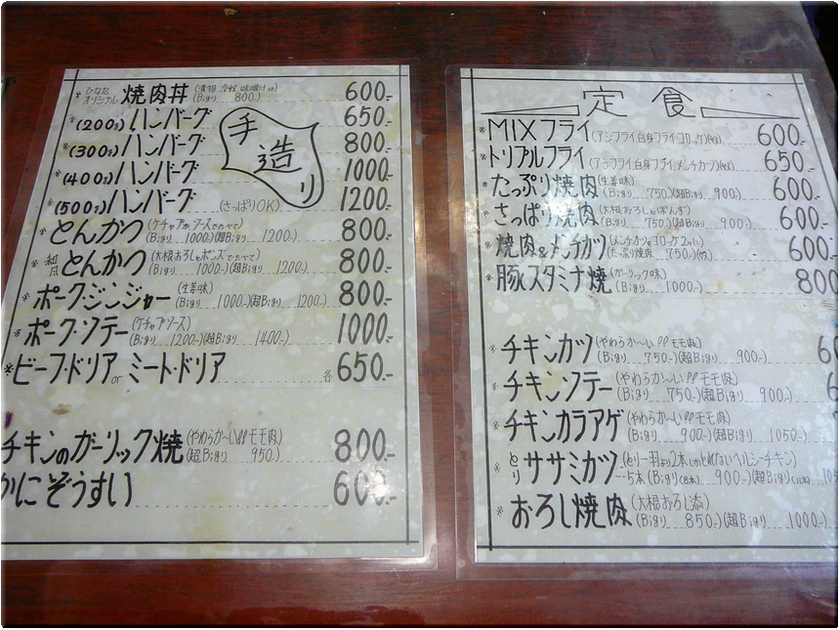 ※ひなたオリジナル 焼肉丼 (漬物 冷奴 味噌汁付) (Bigり 800.) 600-
※(200g)ハンバーグ 650-
※(300g)ハンバーグ 800-
※(400g)ハンバーグ 1000-
※(500g)ハンバーグ (さっぱりOK) 1200-
手造り
※とんかつ (ケチャプorソースでたべて) (Bigり 1000.)(超Bigり 1200-) 800-
※和風とんかつ (大根おろし&ポンズでたべて) (Bigり 1000)(超Bigり 1200-) 800-
※ポーク・ジンジャー (生姜味) (Bigり 1000-)(超Bigり 1200-) 800-
※ポーク・ソテー (ケチャプソース) (Bigり 1200-)(超Bigり 1400-) 1000-
※ビーフ・ドリア or ミート・ドリア 各650-
チキンのガーリック焼 (やわらか〜い!!モモ肉) (超Bigり 950.) 800-
かにぞうすい 600-
定食
※MIXフライ (アジフライ 白身フライ コロッケ) 600-
※トリプルフライ (アジフライ 白身フライ メンチカツ) 650-
※たっぷり焼肉 (生姜味) (Bigり 750-)(超Bigり 900-) 600-
※さっぱり焼肉 (大根おろし&ぽんず) (Bigり 750-)(超Bigり 900-) 600-
※焼肉&メンチカツ (メンチカツをコロッケ2コに) (たっぷり焼肉 750-) 600-
※豚スタミナ焼 (ガーリック味) (Bigり 1000-) 800
※チキンカツ (やわらか〜い!!モモ肉) (Bigり 750-)(超Bigり 900-)
※チキンソテー (やわらか〜い!!モモ肉) (Bigり 750-)(超Bigり 900-)
※チキンカラアゲ (やわらか〜い!!モモ肉) (Bigり 900-)(超Bigり 1050-)
※とりササミカツ (とり一羽より2本しかとれないヘルシーチキン) 5本(Bigり(8本) 900-)(超Bigり
※おろし焼肉 (大根おろし添) (Bigり 850-)(超Bigり 1000-)